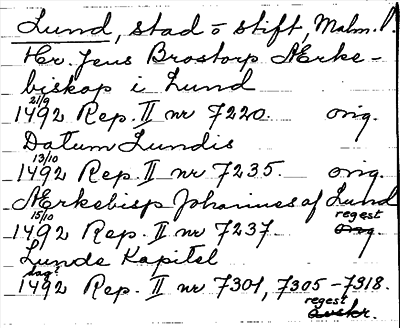 Lund, stad o stift, Malm. l.
Hr. Jens Brostorp Ærke-
biskop i Lund
21/9
1492 Rep. II nr 7220. orig.
Datum Lundis
13/10
1492 Rep. II nr 7235. orig.
Ærkebisp Johannes af Lund
15/10 regest
1492 Rep. II nr 7237 orig.
Lunds Kapitel
1492 Rep. II nr 7301, 7305-7318.
regest
avskr.